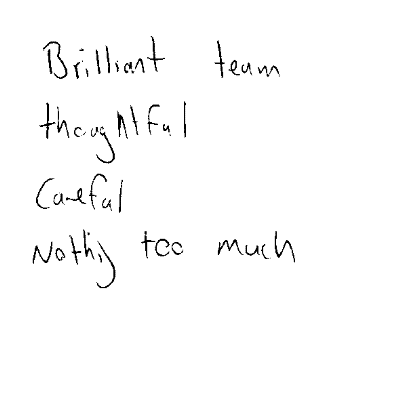 Brilliant team
thoughtful
Careful
Nothing too much